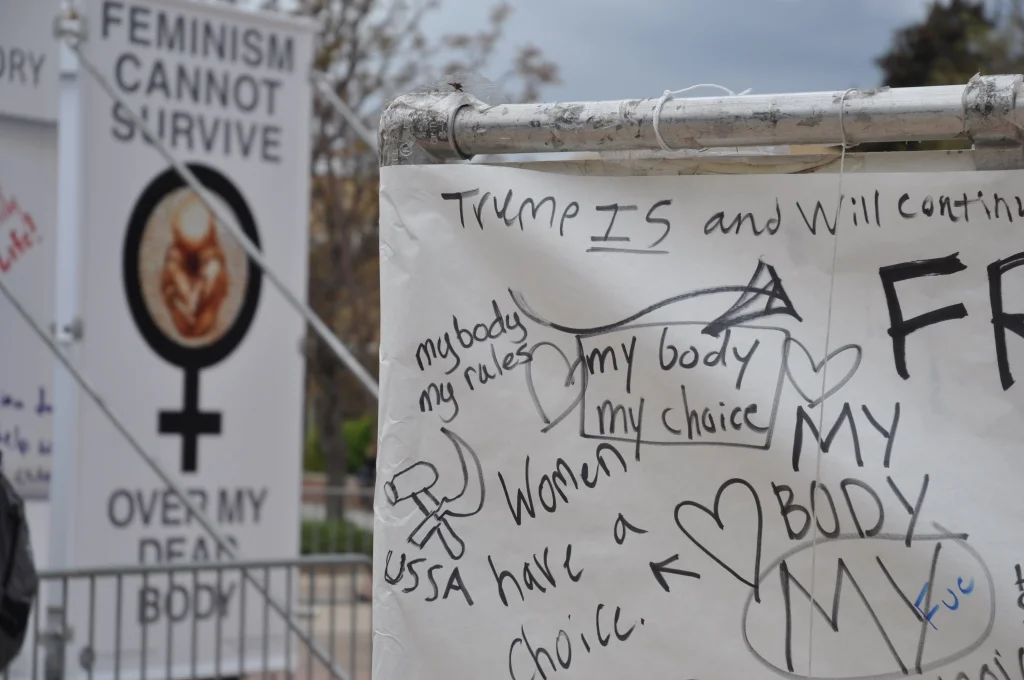 ORY
FEMINISM
CANNOT
SURVIVE
OVER MY
DEAD
BODY
Trump IS and Will continu
FR
my body
my rules
my body
my choice
MY
BODY
MY
Fuc
Women
have a
choice.
USSA